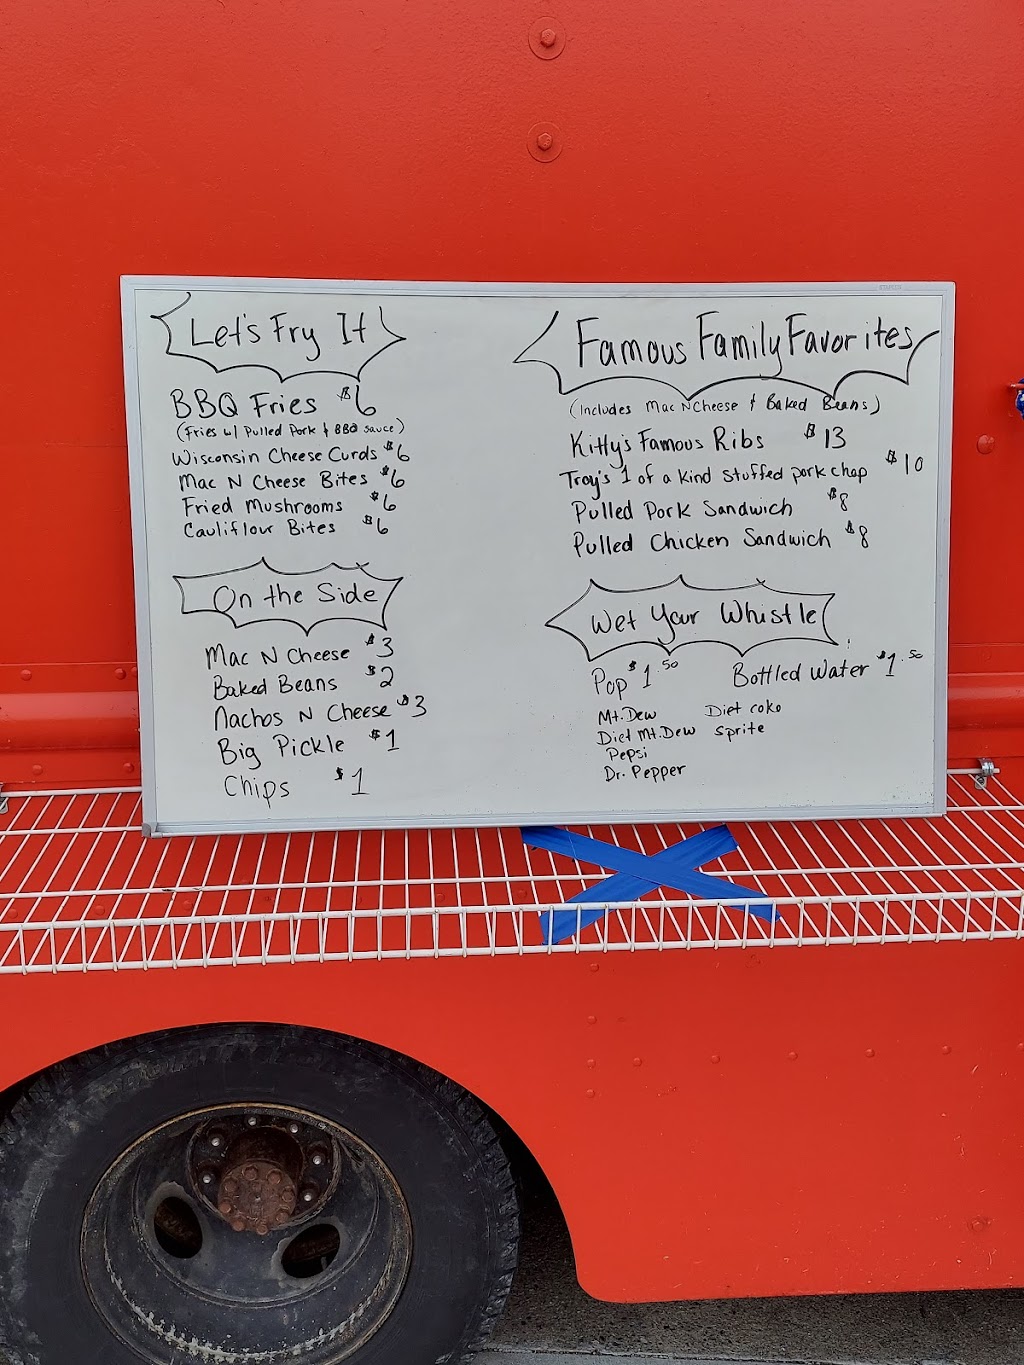 Let's Fry It
BBQ Fries $6
(Fries w/ Pulled Pork & BBQ Sauce)
Wisconsin Cheese Curds $6
Mac N Cheese Bites $6
Fried Mushrooms $6
Cauliflour Bites $6
On the Side
Mac N Cheese $3
Baked Beans $2
Nachos N Cheese $3
Big Pickle $1
Chips $1
Famous Family Favorites
(Includes Mac N Cheese & Baked Beans)
Kitty's Famous Ribs $13
Troy's 1 of a kind Stuffed pork chop $10
Pulled Pork Sandwich $8
Pulled Chicken Sandwich $8
Wet Your Whistle
Pop $1.50 Bottled Water $1.50
Mt. Dew Diet coko
Diet Mt. Dew Sprite
Pepsi
Dr. Pepper